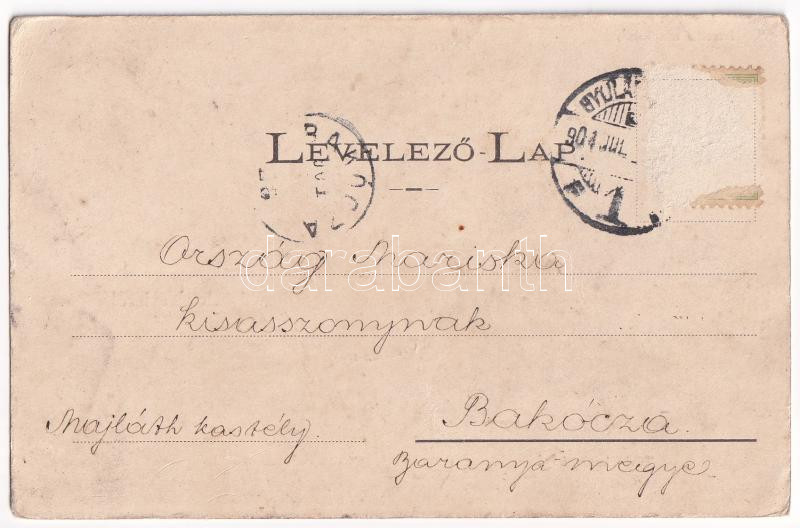 LEVELEZŐ-LAP
Országh Mariska
kisasszonynak
Majláth kastély.
Bakócza.
Baranya megye
904 JUL
darabanth